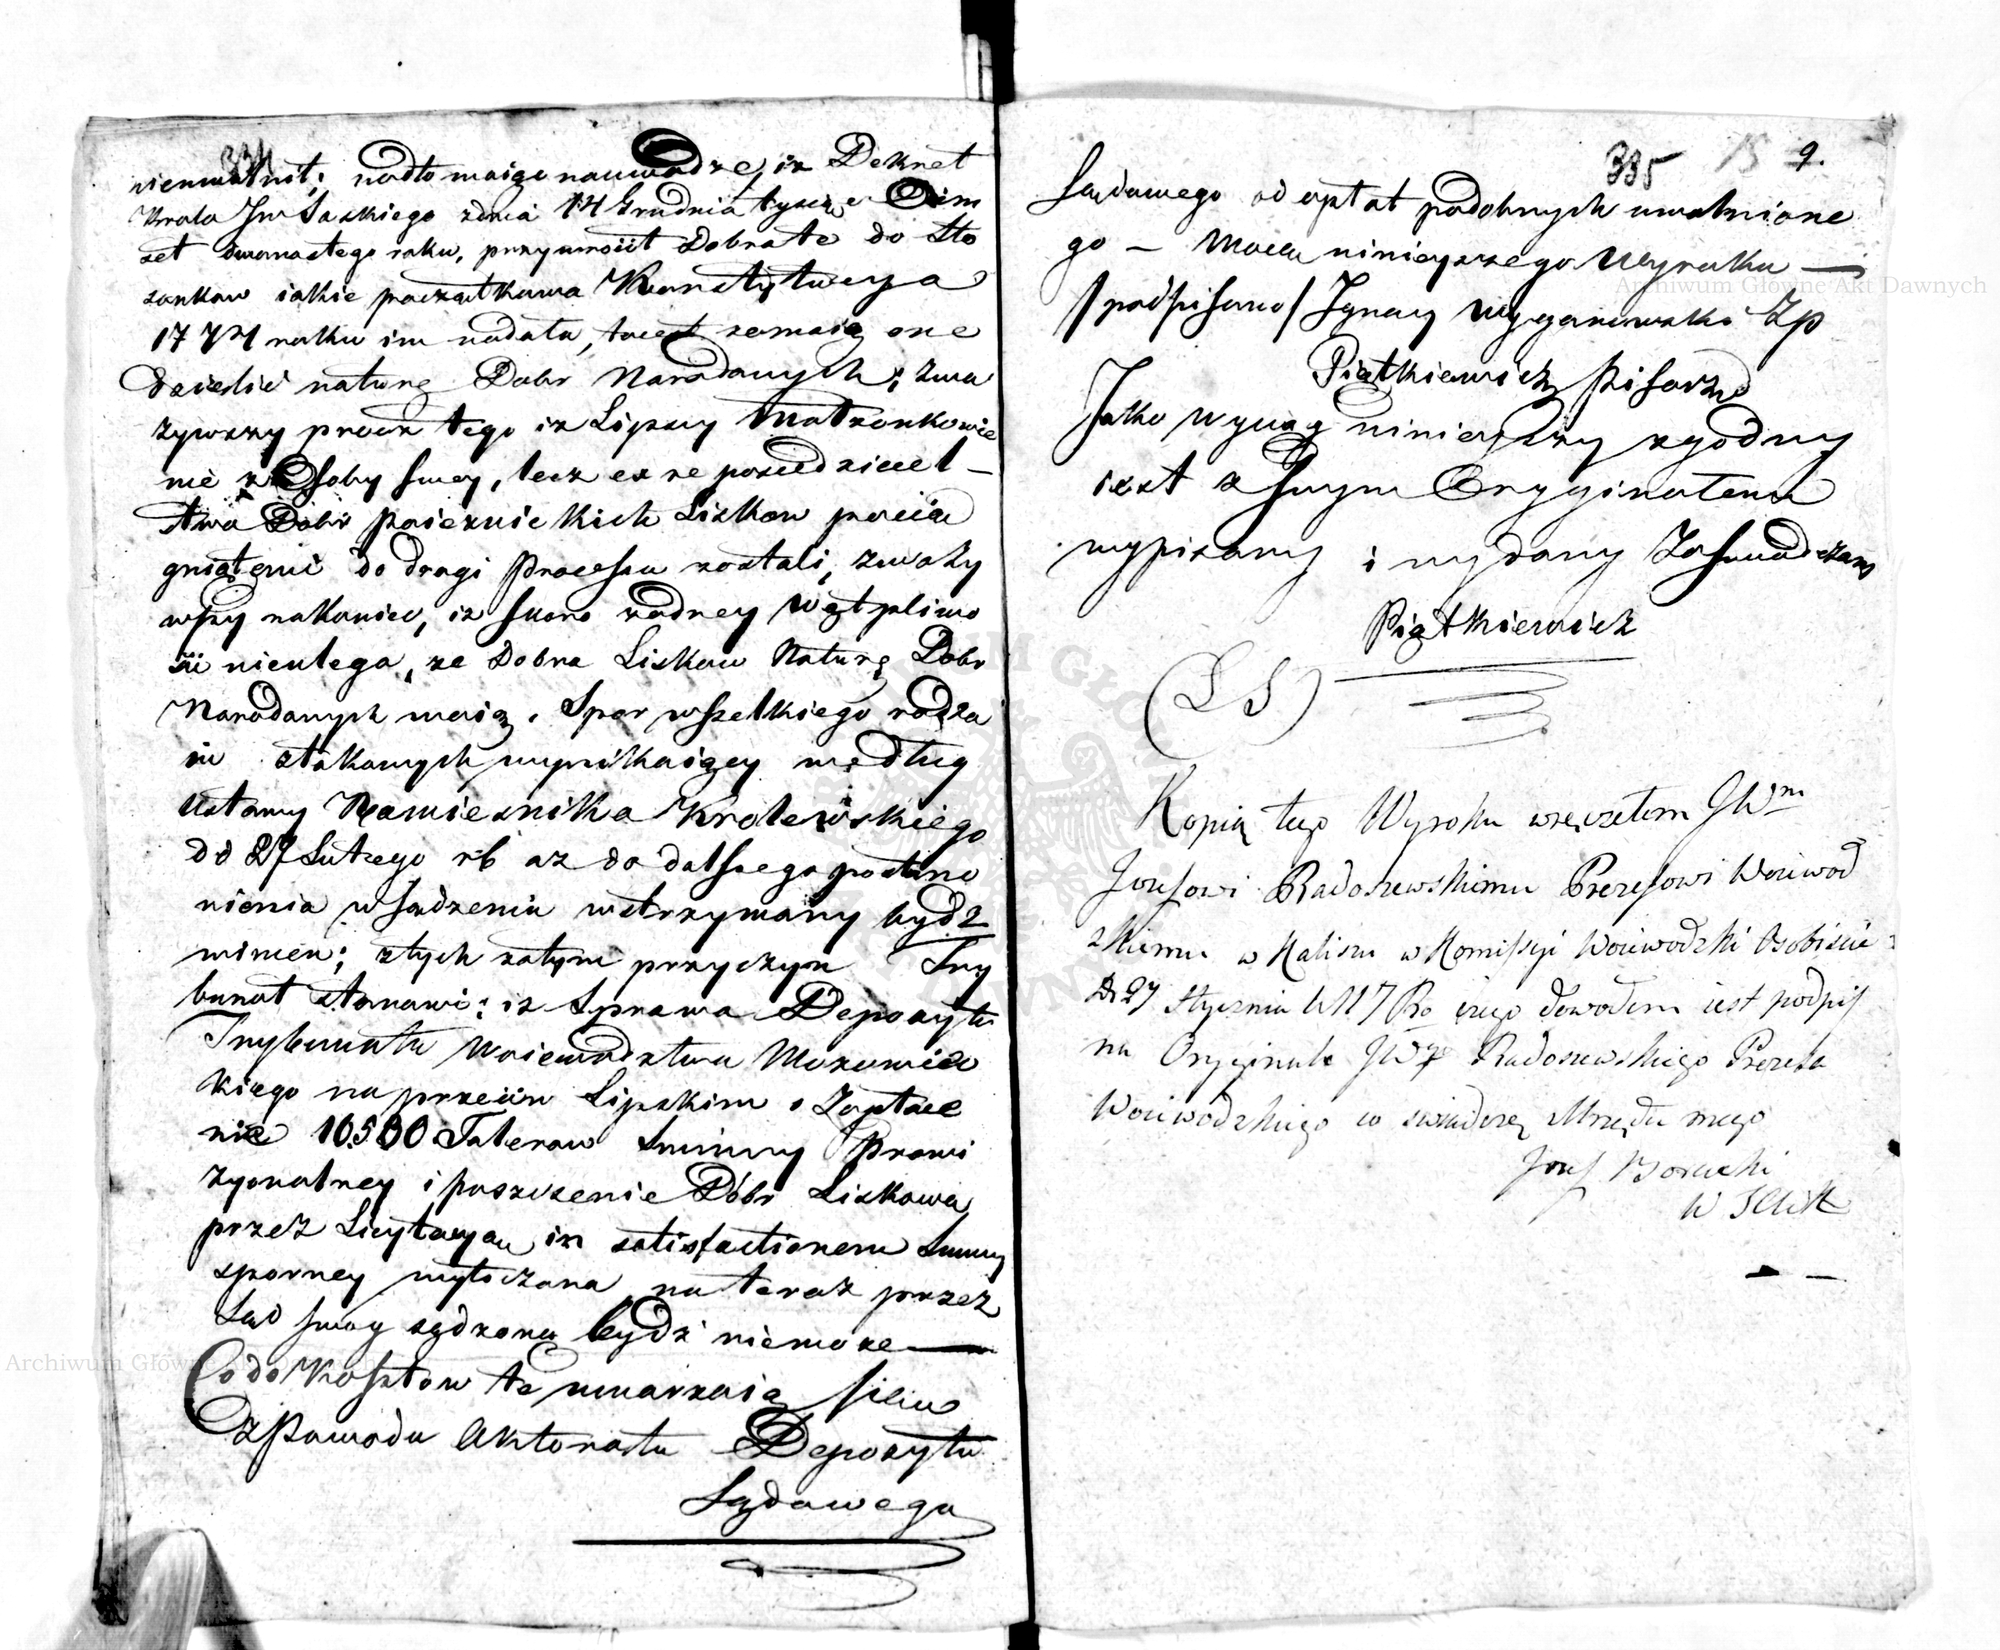 334
nieuwolnił; nadto maiąc na uwadze, iż Dekret
Krola Jm Saskiego z dnia 14 Grudnia tysiąc Ośm
set dwonastego roku, przywrócił Dobra te do sto
sonkow iakie początkowa Konstytucya
1774 roku im nadała, to iest ze maią one
dzielić naturę Dobr Narodowych; zwa
zywszy procz tego iz Lipscy Małżonkowie
nie z Osoby swey, lecz ex re posiedziciel-
stwa Dobr Poiezuickich Liskow pocią
gniętemi do drogi Processu zostali, zwazy
wszy nakoniec, iz skoro zadney wątpliwo
ści nieulega, ze Dobra Liskow Naturę Dobr
Narodowych maią, Spor wszelkiego rodza
iu z takowych wynikaiący według
Ustawy Namiesnika Krolewskiego
dd 27 Lutego rb az do dalszego postano
nienia w sądzeniu wstrzymany bydz
winien; z tych zatym przyczyn Try
bunał stanowi: iz Sprawa Depozytu
Trybunału Woiewodztwa Mazowiec
kiego na przeciw Lipskim o Zapłace
nie 10500 Talerow Summy Prowi
zyonalney i puszczenie Dóbr Liskowa
przez Licytacyą in satisfactionem Summy
sporney wytoczona na teraz przez
Sąd swoy sądzona bydź niemoze —
Co do Kosztow te umarzaią się
z Powodu Aktoratu Depozytu
Sądowego
335 9.
Sądowego od opłat podobnych uwolnione
go — Mocą ninieyszego Wyroku —
/podpisano/ Ignacy Wyganowski Zp
Piątkiewicz Pisarz
Jako Wyciąg ninieyszy zgodny
iest z Swym Oryginałem
wypisany i wydany Zaswiadczam
Piątkiewicz
(LS)
Kopią tego Wyroku wręczyłem JWm
Jozefowi Radoszewskimu Prezesowi Woiwod
zkiemu w Kaliszu w Komissyi Woiwodzki Osobiście
D 27 Stycznia 1817 Ro czego dowodem iest podpis
na Oryginale JWgo Radoszewskiego Prezesa
Woiwodzkiego co swiadczę Urzędu mego
Jozef